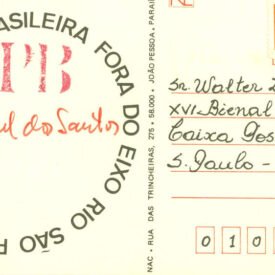 ASILEIRA FORA DO EIXO RIO SÃO P
PB
ul dos Santos
NAC - RUA DAS TRINCHEIRAS, 275 - 58.000 - JOÃO PESSOA - PARAÍ
Sr. Walter
XVI Bienal
Caixa Pos
S. Paulo -
0 1 0